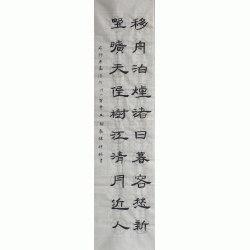 移舟泊煙渚日暮容愁新
野曠天低樹江清月近人